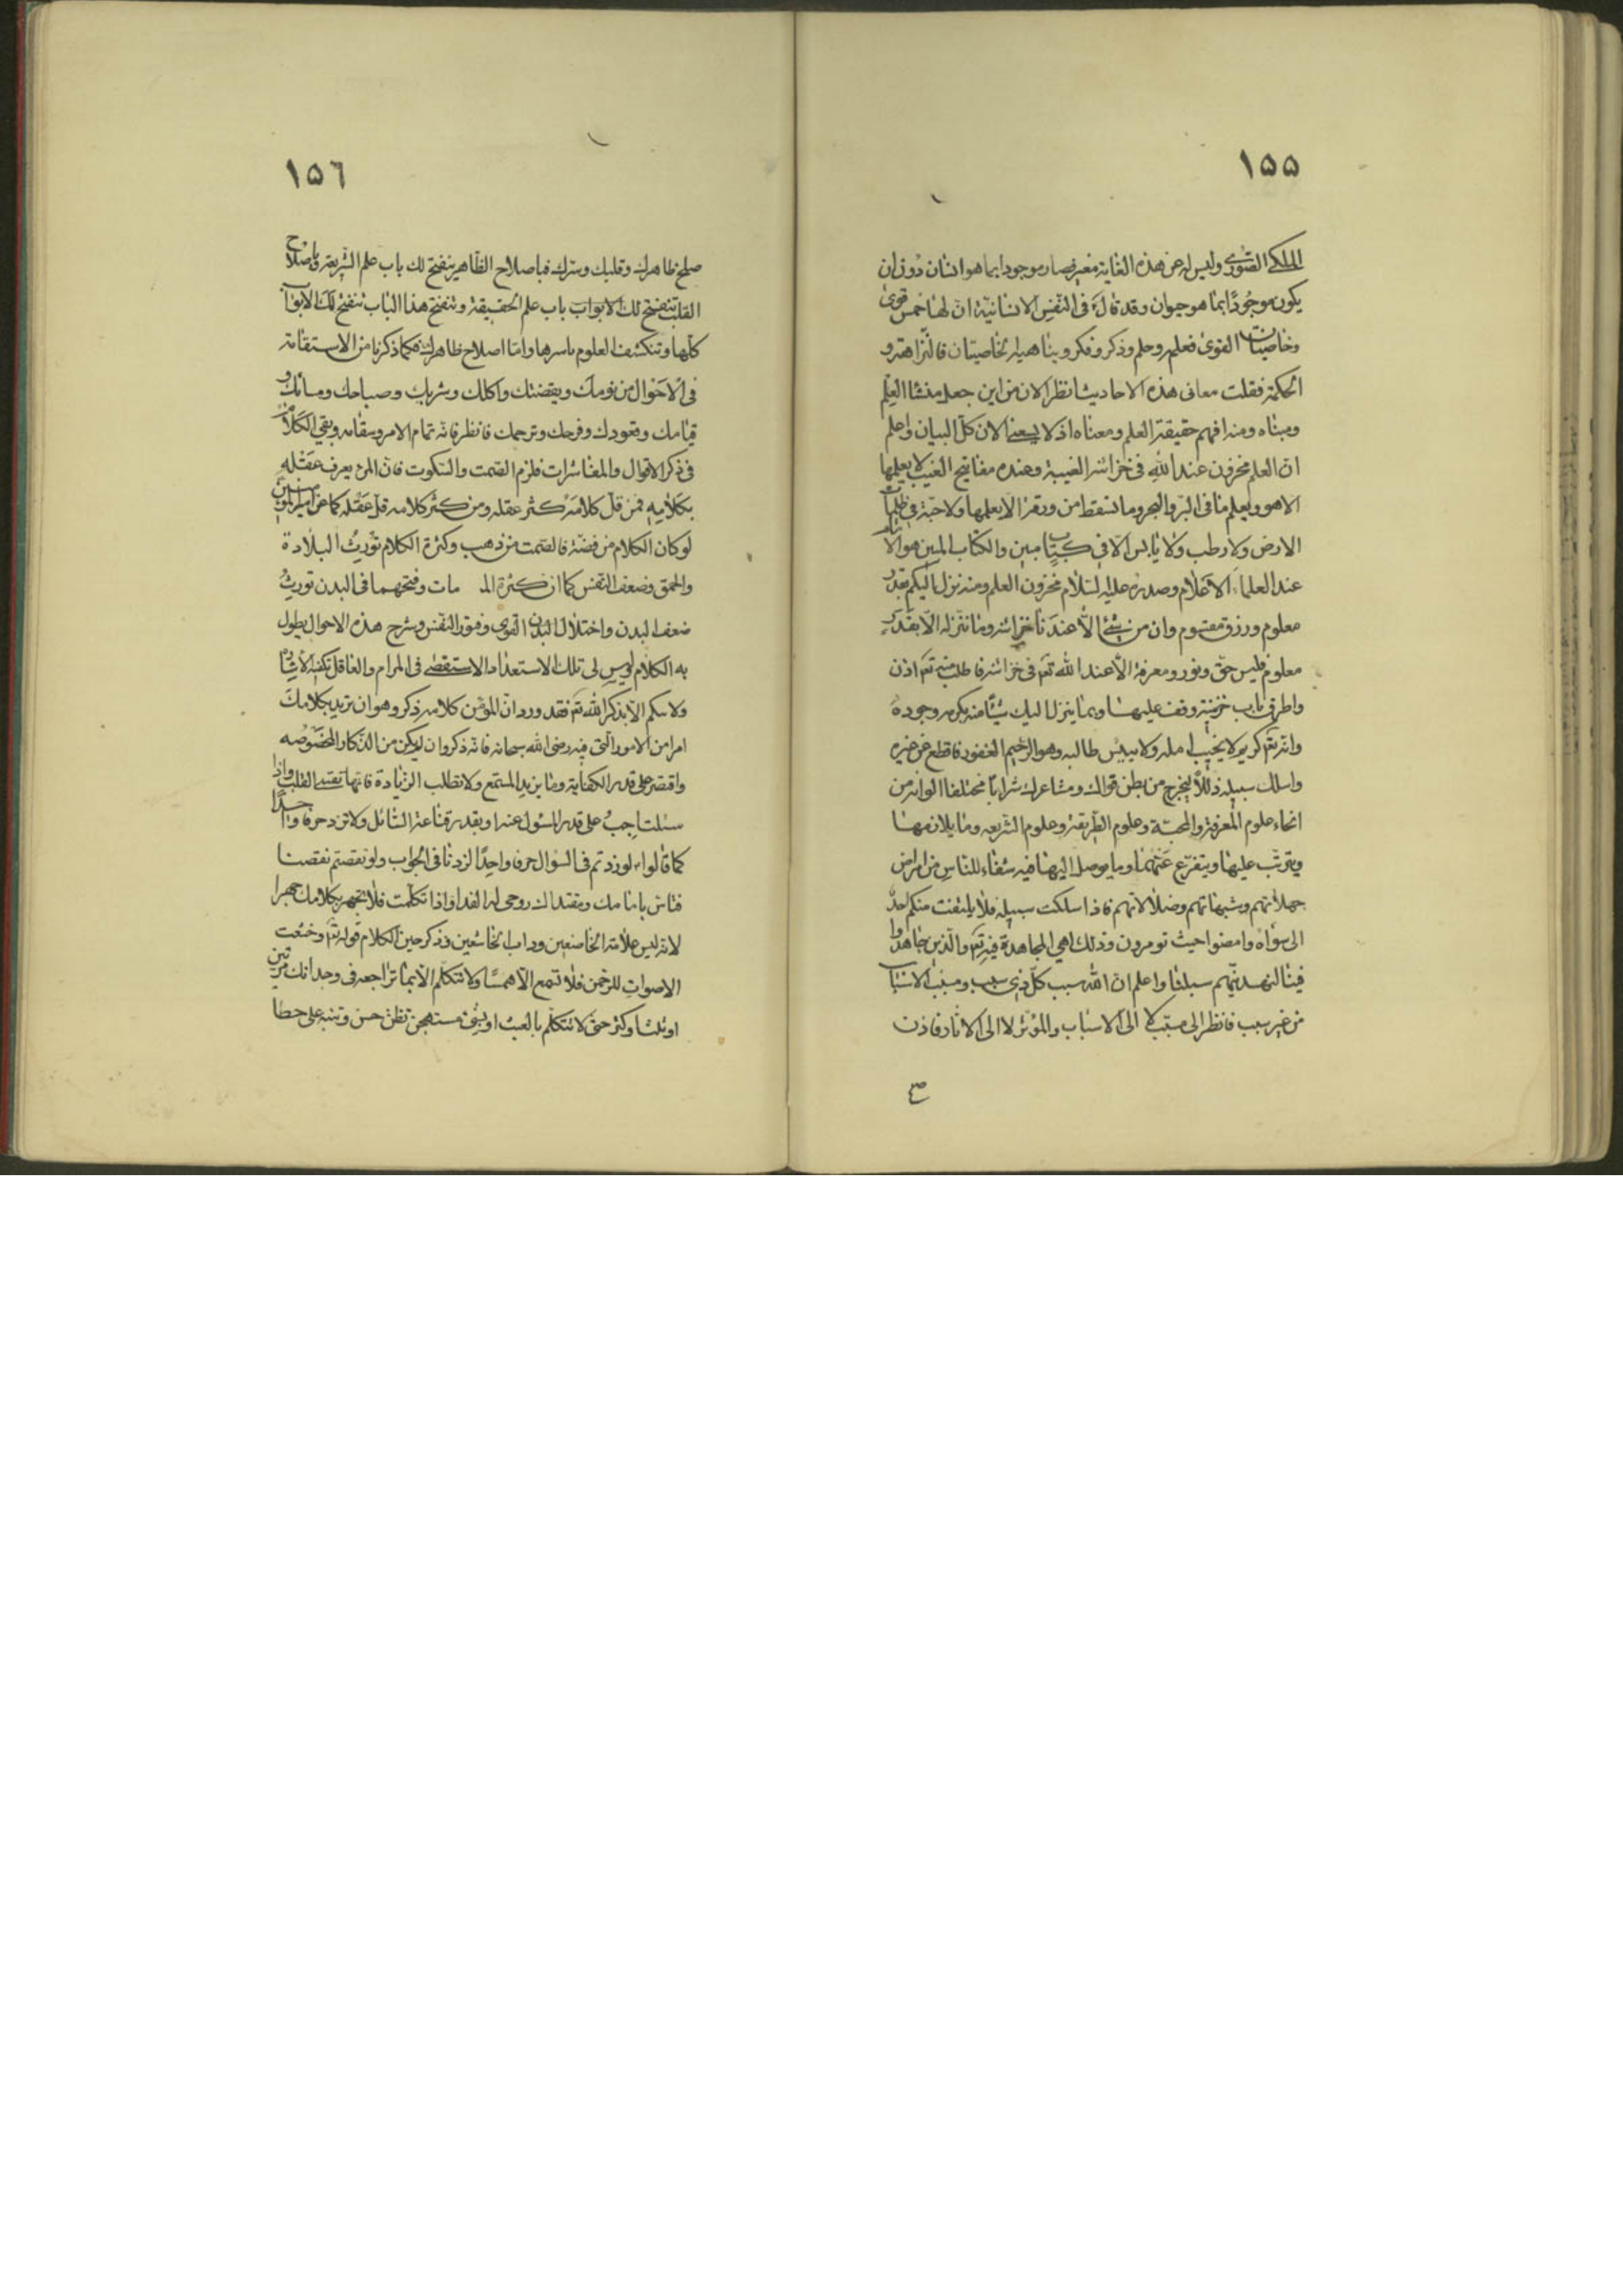 ١٥٥
الملكي الصوري وليس له عن هذه الغاية مغير فصار موجودا بما هو انسان دون ان
يكون موجودًا بما هو حيوان وقد قال في النفس الانسانية ان لها خمس قوى
وخاصيتان القوى فعلم وحلم وذكر وفكر ونباهة وله خاصيتان فالنزاهة و
الحكمة فقلت معانى هذه الاحاديث انظر الان من اين جعل منشا العلم
ومبناه ومنه افهم حقيقة العلم ومعناه اذ لا يسعني الان كل البيان واعلم
ان العلم مخزون عند الله في خزائنه الغيبية وعنده مفاتيح الغيب لا يعلمها
الا هو ويعلم ما في البر والبحر وما تسقط من ورقة الا يعلمها ولا حبة في ظلمات
الارض ولا رطب ولا يابس الا في كتاب مبين والكتاب المبين هو الامام
عند العلماء الاعلام وصدره عليه السلام مخزون العلم ومنه نزل اليكم بقدر
معلوم ورزق مقسوم وان من شئ الا عندنا خزائنه وما ننزله الا بقدر
معلوم فليس حق ونور ومعرفة الا عند الله تع في خزائنه فاطلب منه تع اذن
واطرق باب خزينته وقف عليها وبما ينزل اليك شيئًا منه بكرمه وجوده
وانه تع كريم لا يخيب امله ولا ييئس طالبه وهو الرحيم الغفور فاقطع عن غيره
واسلك سبيله ذللًا ليخرج من بطن قواك ومشاعرك شرابًا مختلفا الوانه من
انحاء علوم المعرفة والمحبة وعلوم الطريقة وعلوم الشريعه وما يلازمها
ويترتب عليها ويتفرع عنهما وما يوصل اليها فيه شفاء للناس من امراض
جهالاتهم وشبهاتهم وضلالاتهم فاذا سلكت سبيله فلا يلتفت منكم احد
الى سواه وامضوا حيث تومرون وذلك هي المجاهدة فيه تع والذين جاهدوا
فينا لنهدينهم سبلنا واعلم ان الله سبب كل ذي سبب ومسبب الاسباب
من غير سبب فانظر الى مسببك لا الى الاسباب والمؤثر لا الى الاثار فاذن
١٥٦
صلح ظاهرك وقلبك وسرك فباصلاح الظاهر ينفتح لك باب علم الشريعة وباصلاح
القلب تنفتح لك الابواب باب علم الحقيقة وتنفتح هذا الباب تنفتح لك الابواب
كلها وتنكشف العلوم باسرها واما اصلاح ظاهرك فكما ذكرنا من الاستقامة
في الاحوال من نومك ويقضتك واكلك وشربك وصباحك ومسائك و
قيامك وقعودك وفرحك وترحك فانظر فانه تمام الامر ومقامه وبقي الكلام
في ذكر الاقوال والمعاشرات فلزم الصمت والسكوت فان المرء يعرف عقله
بكلامه فمن قل كلامه كثر عقله ومن كثر كلامه قل عقله كما عن امير المؤمنين
لو كان الكلام من فضة فالصمت من ذهب وكثرة الكلام تورث البلادة
والحمق وضعف النفس كما ان كثرة الـ مات وفتحهما في البدن تورث
ضعف البدن واختلال البدن القوى وفتور النفس وشرح هذه الاحوال يطول
به الكلام وليس لي تلك الاستعداد الاستقصاء في المرام والعاقل تكفيه الاشارة
ولا تتكلم الا بذكر الله تع فقد ورد ان المؤمن كلامه ذكر وهو ان تريد بكلامك
امرا من الامور التي فيه رضى الله سبحانه فانه ذكر وان لم يكن من الاذكار المخصوصه
واقتصر على قدر الكفاية وما يريد المستمع ولا تطلب الزيادة فانها تقسي القلب واذا
سئلت اجب على قدر المسئول عنه او بقدر قناعة السائل ولا تزد حرفا واحدًا
كما قالوا لو زدتم في السؤال حرفا واحدًا لزدنا في الجواب ولو نقصتم نقصنا
فتاس بامامك ومقتداك روحى له الفدا واذا تكلمت فلا تجهر بكلامك جهرا
لانه ليس علامة الخاضعين وداب الخاشعين وذكر حين الكلام قوله تع وخشعت
الاصوات للرحمن فلا تسمع الا همسًا ولا تتكلم الا بما تراجعه في وجدانك مرتين
او ثلثا وكثر حتى لا تتكلم بالعبث او بشئ مستهجن تظن حسن وتنبه على خطا